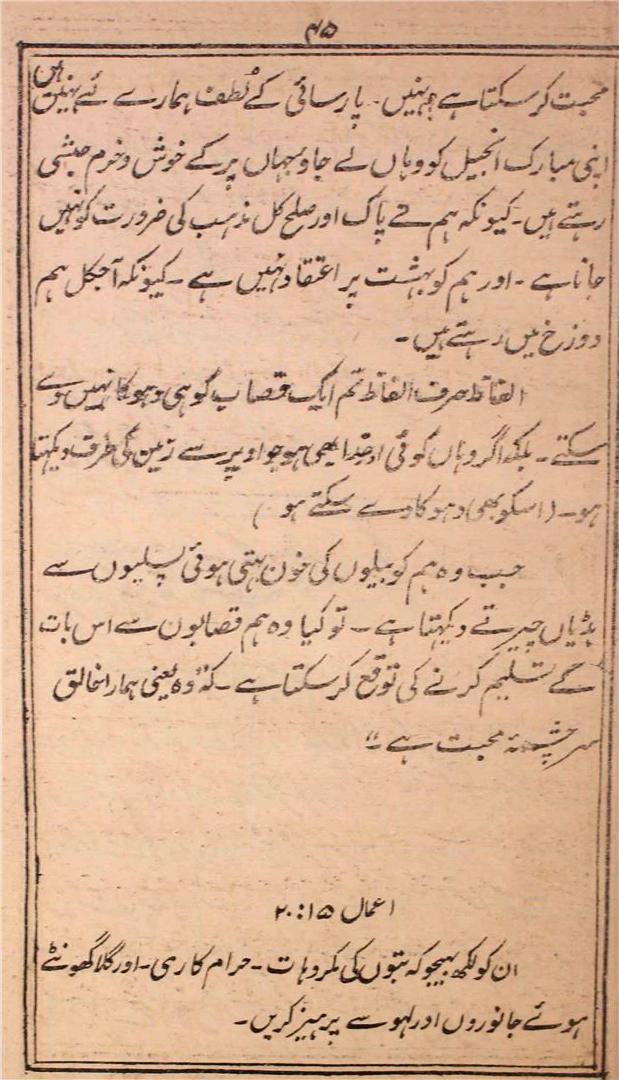 ۴۵
محبت کر سکتا ہے؟ نہیں۔ پارسائی کے لُطف ہمارے لئے نہیں ہیں
اپنی مبارک انجیل کو وہاں لے جاو جہاں پر کے خوش و خرم حبشی
رہتے ہیں۔ کیونکہ ہم نے پاک اور صلح کل مذہب کی ضرورت کو نہیں
جانا ہے۔ اور ہم کو بہشت پر اعتقاد نہیں ہے۔ کیونکہ آجکل ہم
دوزخ میں رہتے ہیں۔
الفاظ صرف الفاظ تم ایک قصاب کو ہی دہوکا نہیں دے
سکتے۔ بلکہ اگر وہاں کوئی خدا بھی ہو جو اوپر سے زمین کی طرف دیکہتا
ہو۔ (اسکو بھی دہوکا دے سکتے ہو)
جب وہ ہم کو بیلوں کی خون بہتی ہوئی پسلیوں سے
ہڈیاں چیرتے دیکہتا ہے۔ تو کیا وہ ہم قصابوں سے اس بات
کے تسلیم کرنے کی توقع کر سکتا ہے۔ کہ وہ یعنی ہمارا خالق
سرچشمۂ محبت ہے۔"
اعمال ۱۵:۲۰
ان کو لکھ بہیجو کہ بتوں کی مکروہات۔ حرام کاری۔ اور گلا گھونٹے
ہوئے جانوروں اور لہو سے پرہیز کریں۔